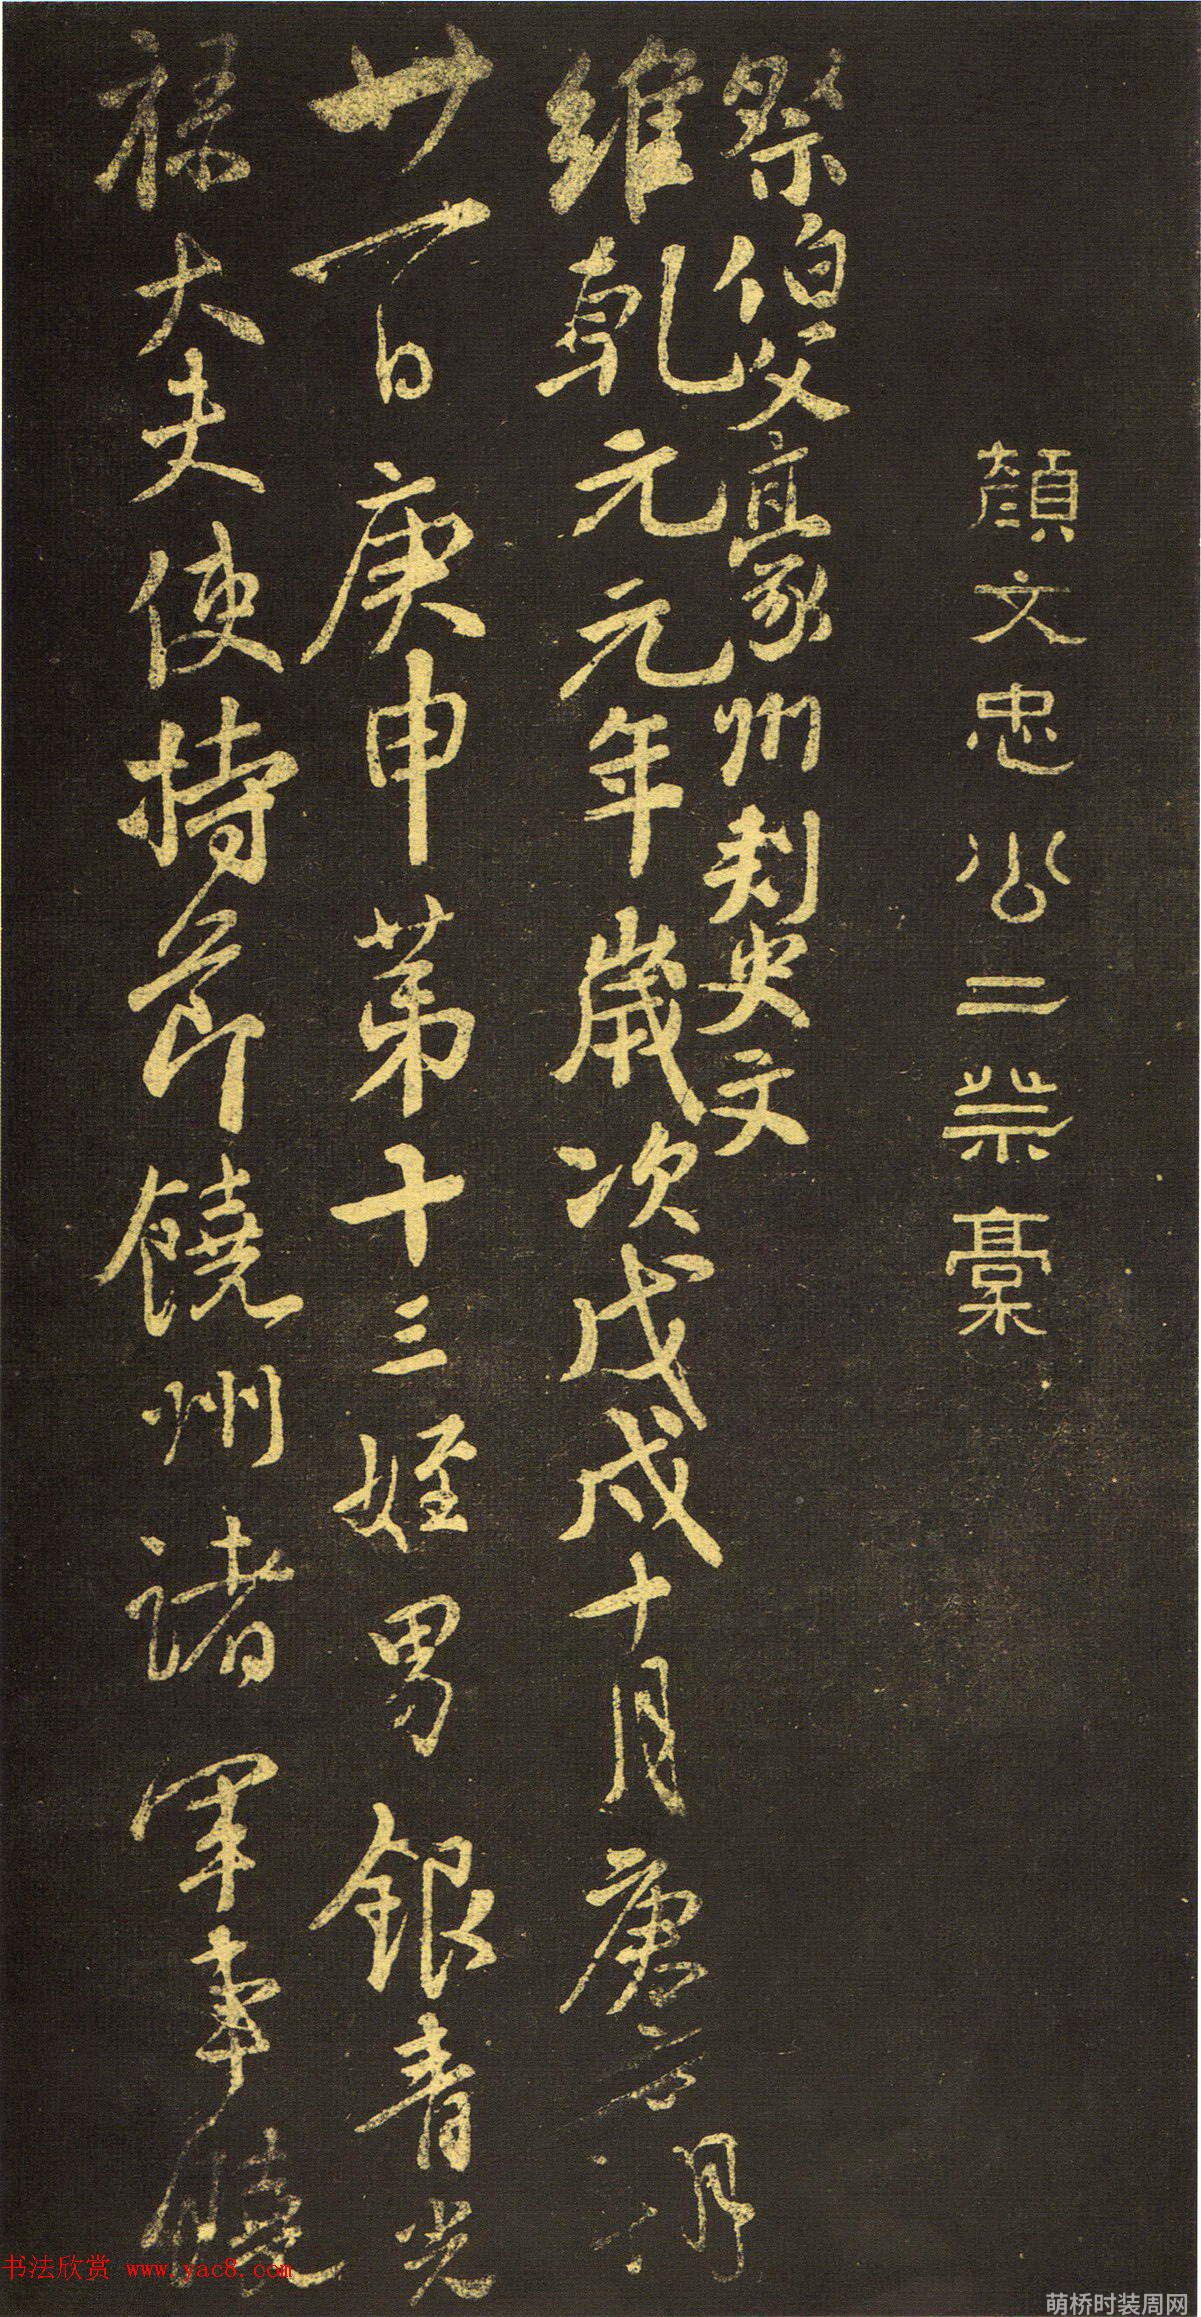 顏文忠公二祭藁
祭伯父豪州刺史文
維乾元元年歲次戊戌十月庚朔
廿一日庚申苐十三姪男銀青光
祿大夫使持節饒州諸軍事饒
书法欣赏 www.yac8.com
萌桥时装周网